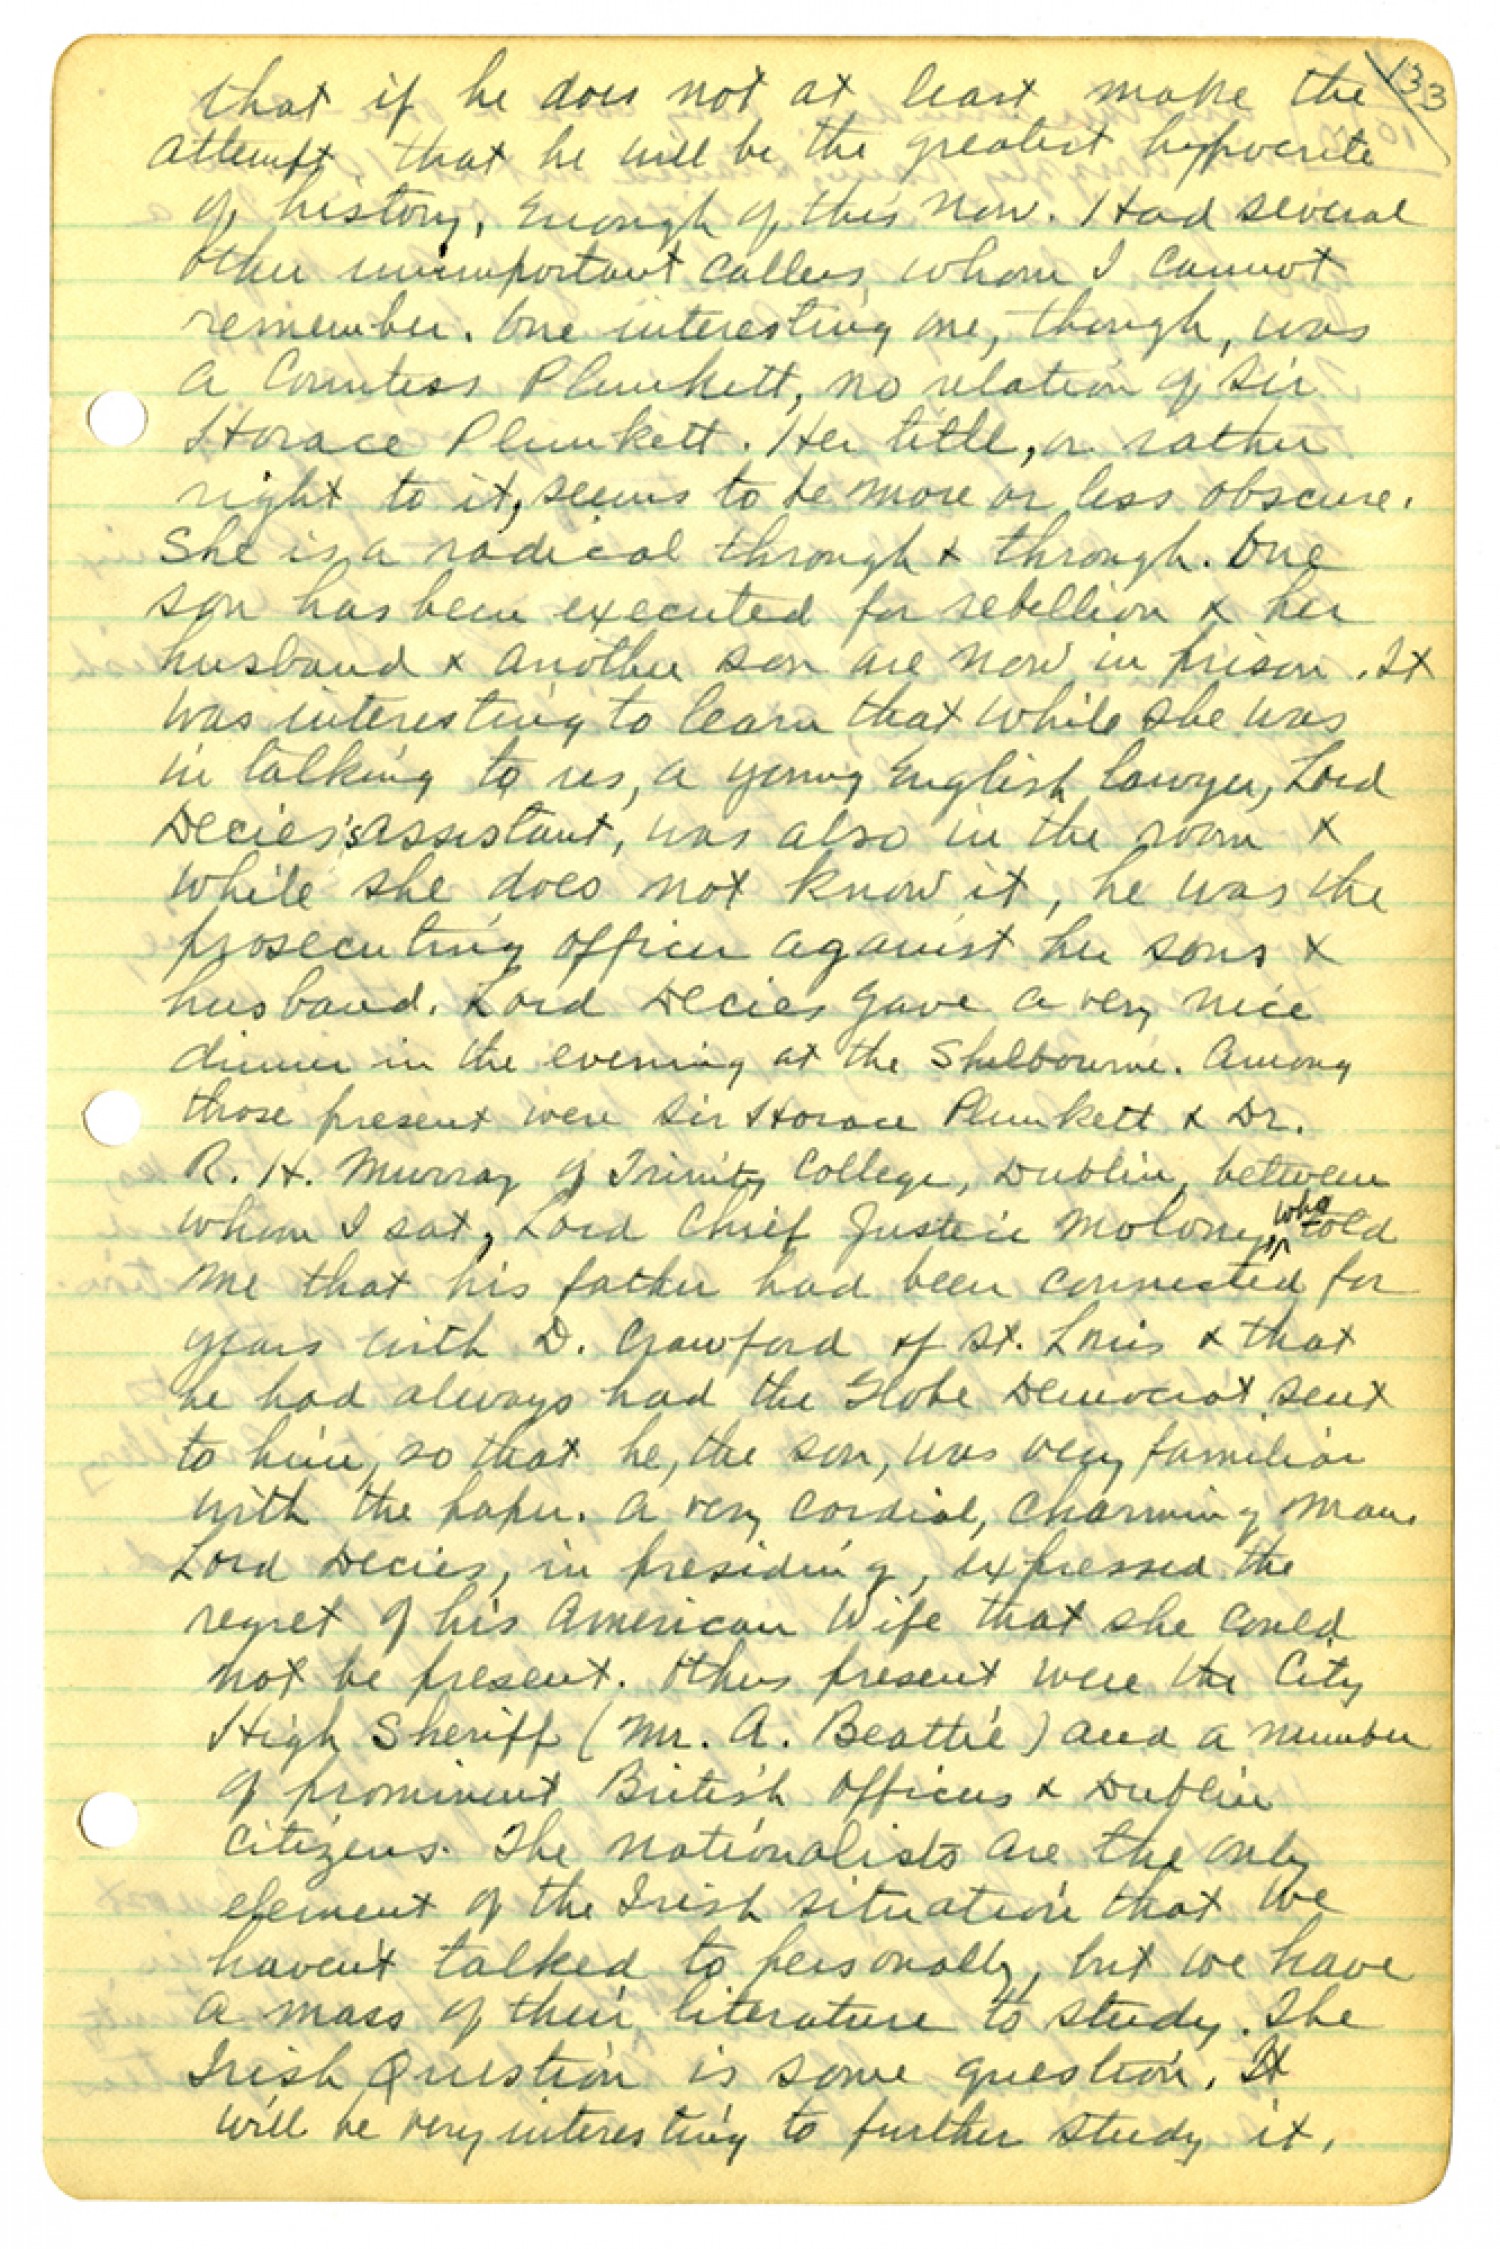 133
that if he does not at least make the
attempt that he will be the greatest hyppocrite
of history. Enough of this now. Had several
other unimportant callers, whom I cannot
remember. One interesting one, though, was
a Countess Plunkett, no relation of Sir
Horace Plunkett. Her title, or rather
right to it, seems to be more or less obscure.
She is a radical through & through. One
son has been executed for rebellion & her
husband & another son are now in prison. It
was interesting to learn that while she was
in talking to us, a young English lawyer, Lord
Decies's assistant, was also in the room &
while she does not know it, he was the
prosecuting officer against her sons &
husband. Lord Decies gave a very nice
dinner in the evening at the Shelbourne. Among
those present were Sir Horace Plunkett & Dr.
R. H. Murray of Trinity College, Dublin, between
whom I sat, Lord Chief Justice Molony who told
me that his father had been connected for
years with D. Crawford of St. Louis & that
he had always had the Globe Democrat sent
to him, so that he, the son, was very familiar
with the paper. A very cordial, charming man.
Lord Decies, in presiding, expressed the
regret of his American Wife that she could
not be present. Others present were the City
High Sheriff (Mr. A. Beattie) and a number
of prominent British Officers & Dublin
citizens. The nationalists are the only
element of the Irish situation that we
haven't talked to personally, but we have
a mass of their literature to study. The
Irish Question is some question. It
will be very interesting to further study it.